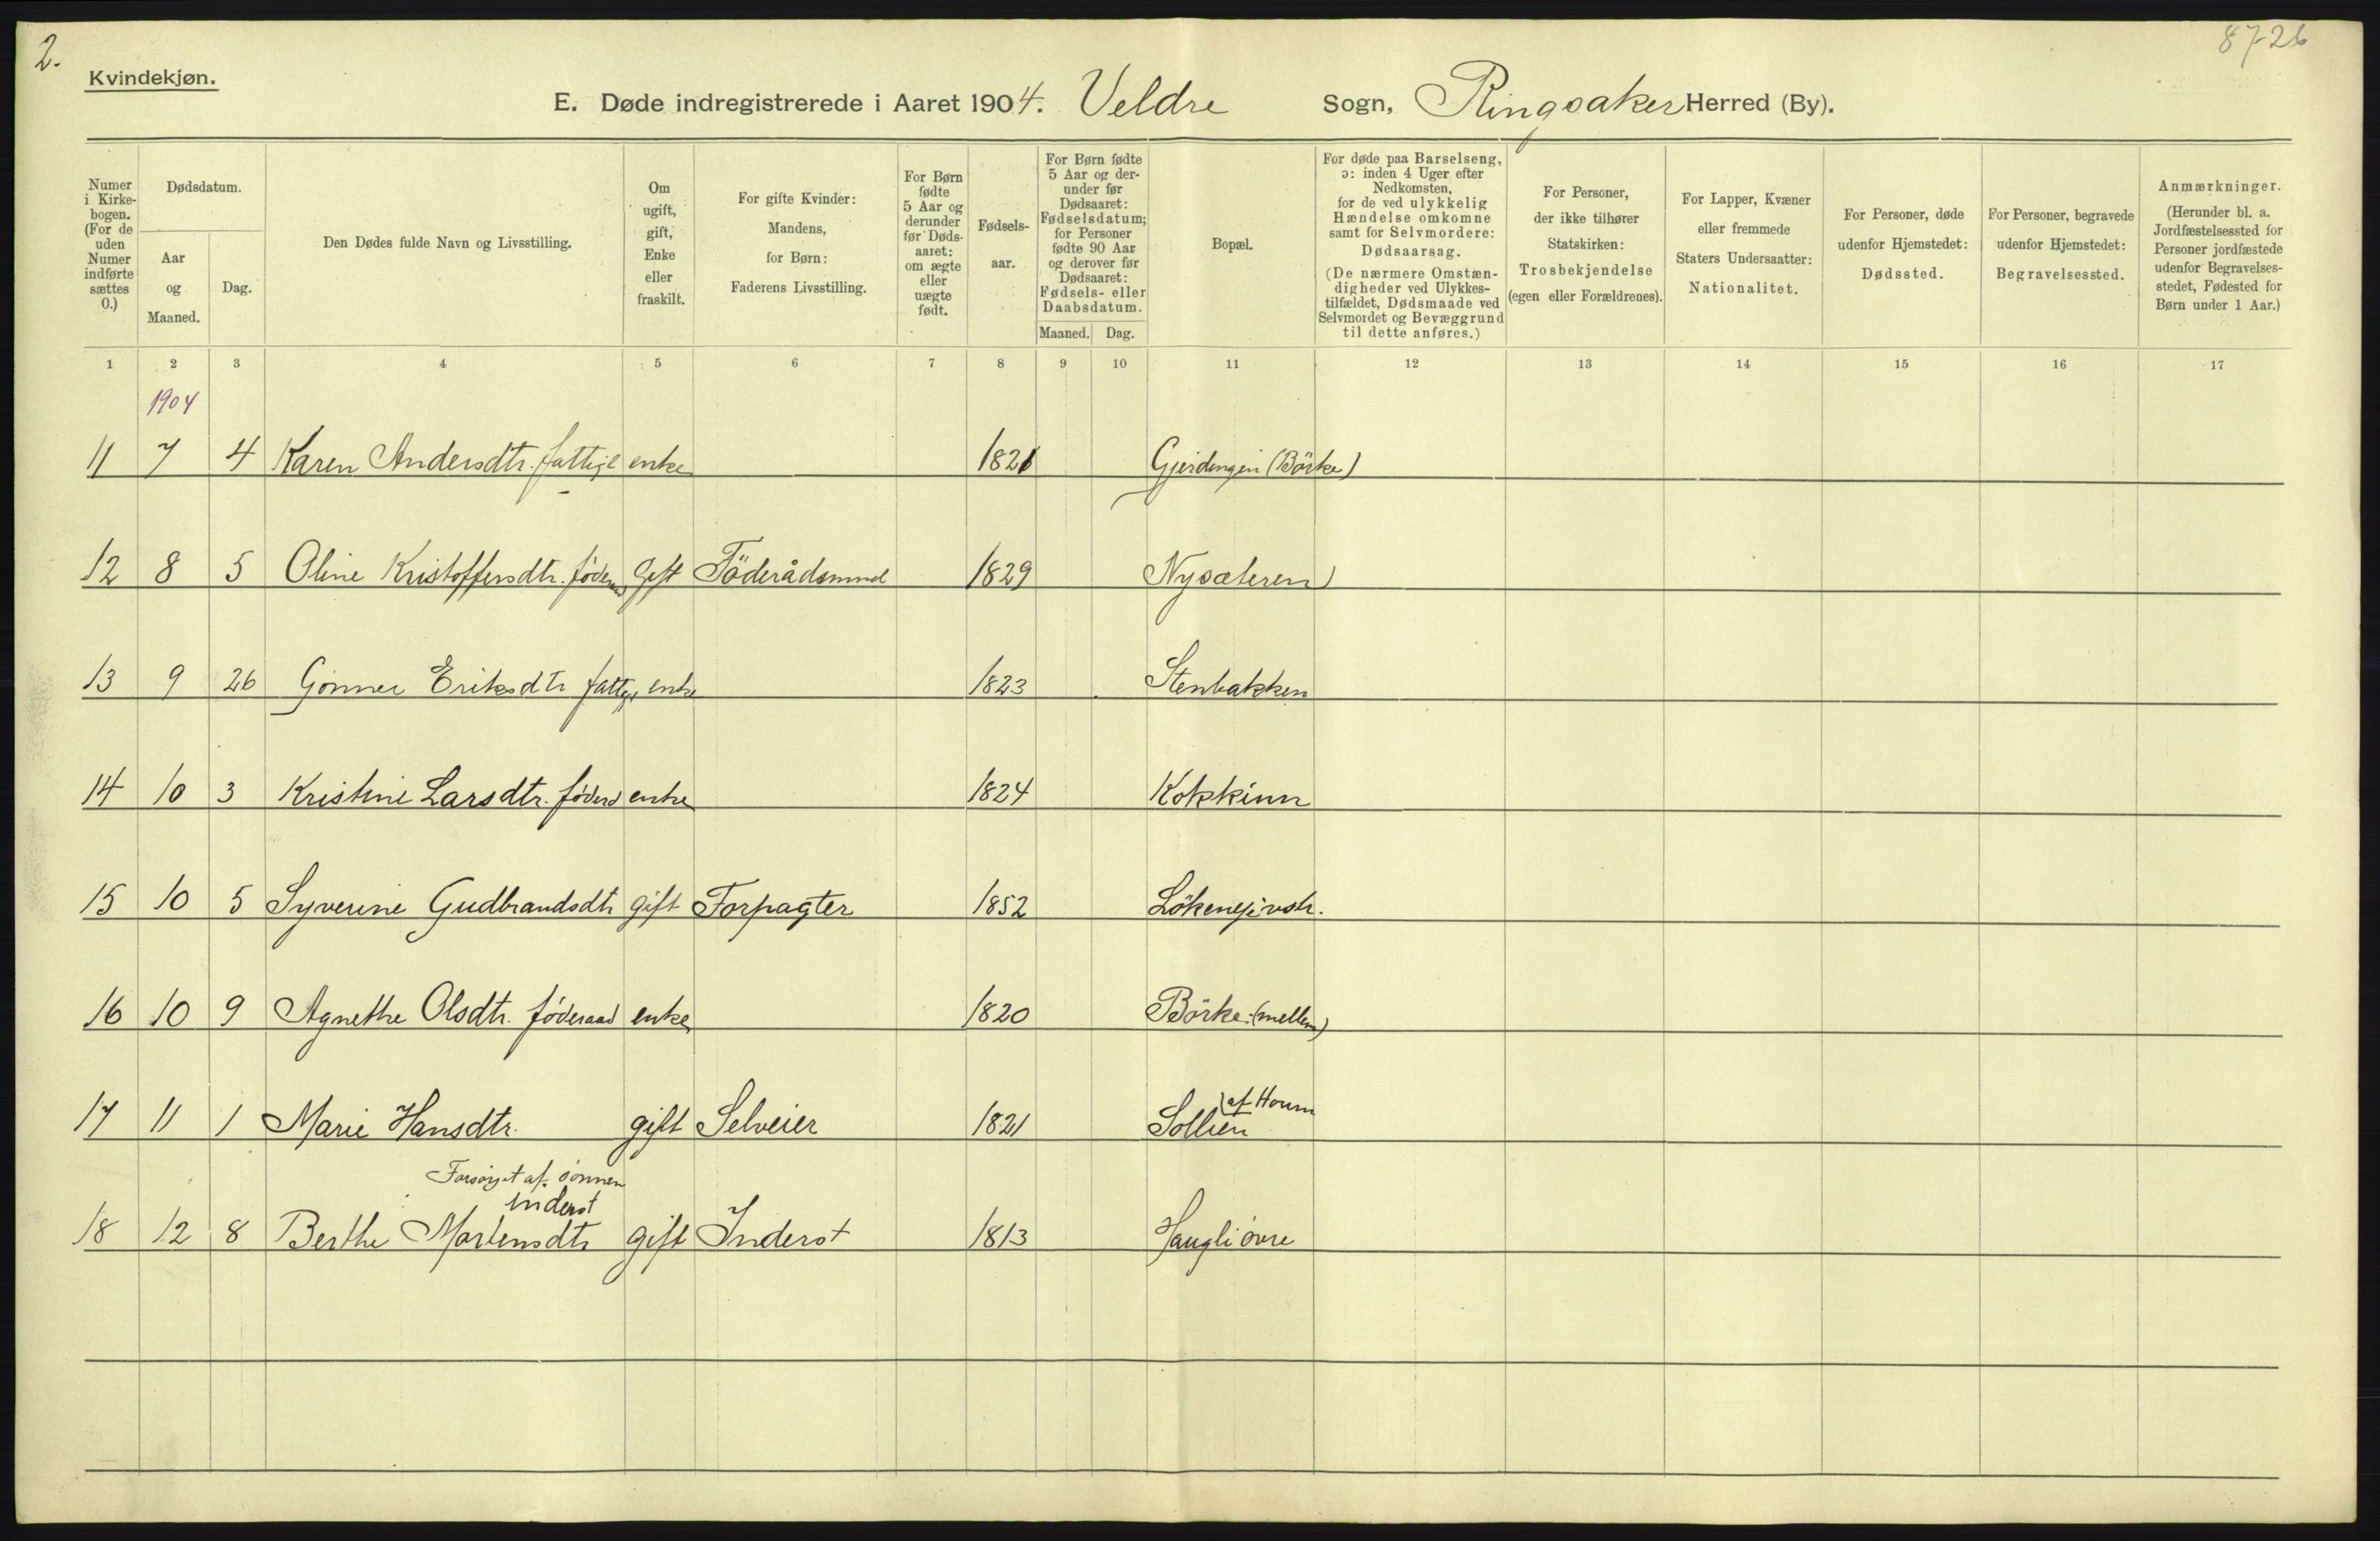 2.
87-26
Kvindekjøn.
E. Døde indregistrerede i Aaret 1904. Veldre Sogn, Ringsaker Herred (By).
Numer i Kirkebogen. (For de uden Numer indførte sættes 0.)
Dødsdatum.
Aar og Maaned.
Dag.
Den Dødes fulde Navn og Livsstilling.
Om ugift, gift, Enke eller fraskilt.
For gifte Kvinder: Mandens, for Børn: Faderens Livsstilling.
For Børn fødte 5 Aar og derunder før Dødsaaret: om ægte eller uægte født.
Fødselsaar.
For Børn fødte 5 Aar og derunder før Dødsaaret: Fødselsdatum; for Personer fødte 90 Aar og derover før Dødsaaret: Fødsels- eller Daabsdatum.
Maaned. Dag.
Bopæl.
For døde paa Barselseng, ɔ: inden 4 Uger efter Nedkomsten, for de ved ulykkelig Hændelse omkomne samt for Selvmordere: Dødsaarsag. (De nærmere Omstændigheder ved Ulykkestilfældet, Dødsmaade ved Selvmordet og Bevæggrund til dette anføres.)
For Personer, der ikke tilhører Statskirken: Trosbekjendelse (egen eller Forældrenes).
For Lapper, Kvæner eller fremmede Staters Undersaatter: Nationalitet.
For Personer, døde udenfor Hjemstedet: Dødssted.
For Personer, begravede udenfor Hjemstedet: Begravelsessted.
Anmærkninger. (Herunder bl. a. Jordfæstelsessted for Personer jordfæstede udenfor Begravelsesstedet, Fødested for Børn under 1 Aar.)
1 2 3 4 5 6 7 8 9 10 11 12 13 14 15 16 17
1904
11 7 4 Karen Andersdtr. fattige enke 1821 Gjerdengen (Börke)
12 8 5 Oline Kristoffersdtr. gift Föderådsmand 1829 Nysæteren
13 9 26 Gönner Eriksdtr fattig enke 1823 Stenbakken
14 10 3 Kristine Larsdtr. föderd enke 1824 Kokkinn
15 10 5 Syverine Gudbrandsdtr gift Forpagter 1852
16 10 9 Agnethe Olsdtr. föderaad enke 1820 Börke (mellem)
17 11 1 Marie Hansdtr. gift Selveier 1821 Sollien af Houm
Forsörget af sönnen
inderst
18 12 8 Berthe Martensdtr gift Inderst 1813 Haugli övre